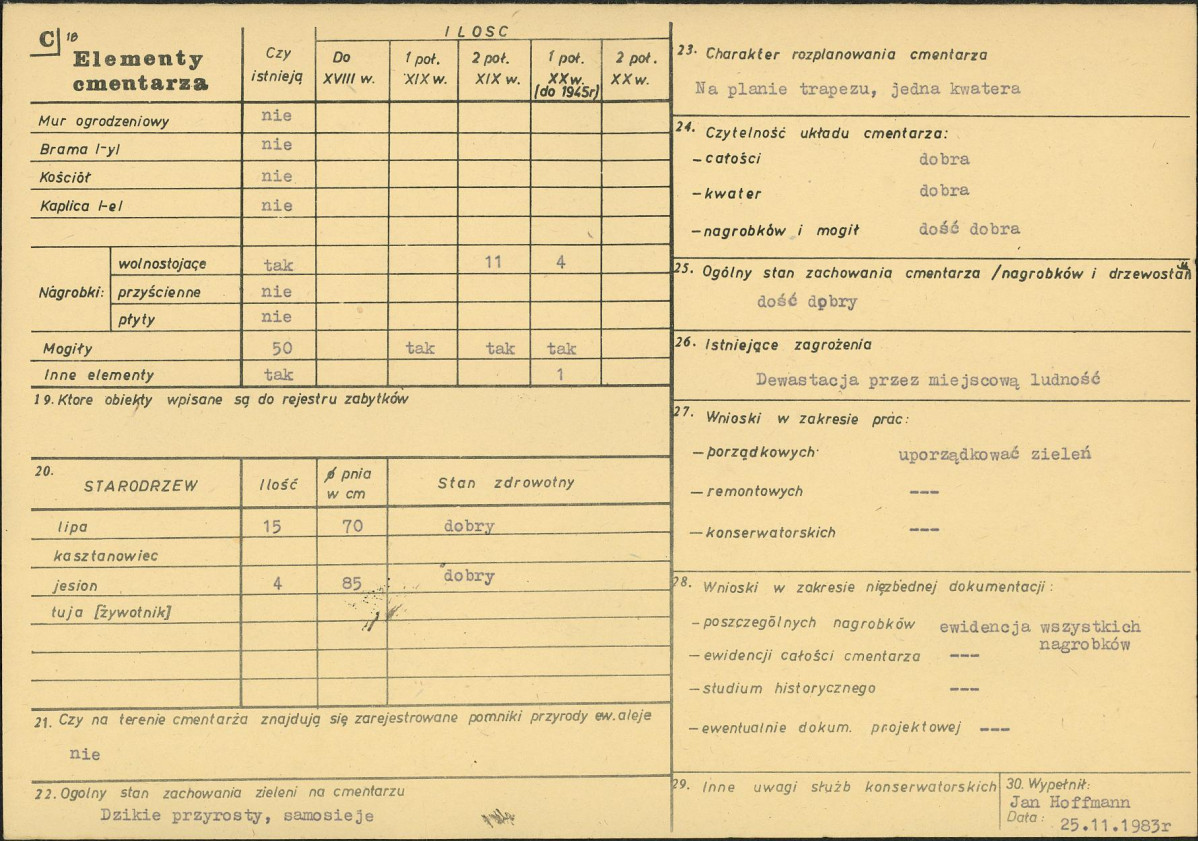 C 18
Elementy
cmentarza
Czy
istnieją
ILOSC
Do
XVIII w.
1 poł.
XIX w.
2 poł.
XIX w.
1 poł.
XX w.
(do 1945r)
2 poł.
XX w.
Mur ogrodzeniowy nie
Brama l-yl nie
Kościół nie
Kaplica l-el nie
Nagrobki:
wolnostojące tak 11 4
przyścienne nie
płyty nie
Mogiły 50 tak tak tak
Inne elementy tak 1
19. Ktore obiekty wpisane są do rejestru zabytków
20.
STARODRZEW Ilość ø pnia
w cm Stan zdrowotny
lipa 15 70 dobry
kasztanowiec
jesion 4 85 dobry
tuja [żywotnik]
21. Czy na terenie cmentarza znajdują się zarejestrowane pomniki przyrody ew. aleje
nie
22. Ogolny stan zachowania zieleni na cmentarzu
Dzikie przyrosty, samosieje
23. Charakter rozplanowania cmentarza
Na planie trapezu, jedna kwatera
24. Czytelność układu cmentarza:
- całości dobra
- kwater dobra
- nagrobków i mogił dość dobra
25. Ogólny stan zachowania cmentarza /nagrobków i drzewostanu
dość dobry
26. Istniejące zagrożenia
Dewastacja przez miejscową ludność
27. Wnioski w zakresie prac:
- porządkowych uporządkować zieleń
- remontowych ---
- konserwatorskich ---
28. Wnioski w zakresie niezbędnej dokumentacji:
- poszczególnych nagrobków ewidencja wszystkich
nagrobków
- ewidencji całości cmentarza ---
- studium historycznego ---
- ewentualnie dokum. projektowej ---
29. Inne uwagi służb konserwatorskich
30. Wypełnił:
Jan Hoffmann
Data: 25.11.1983r